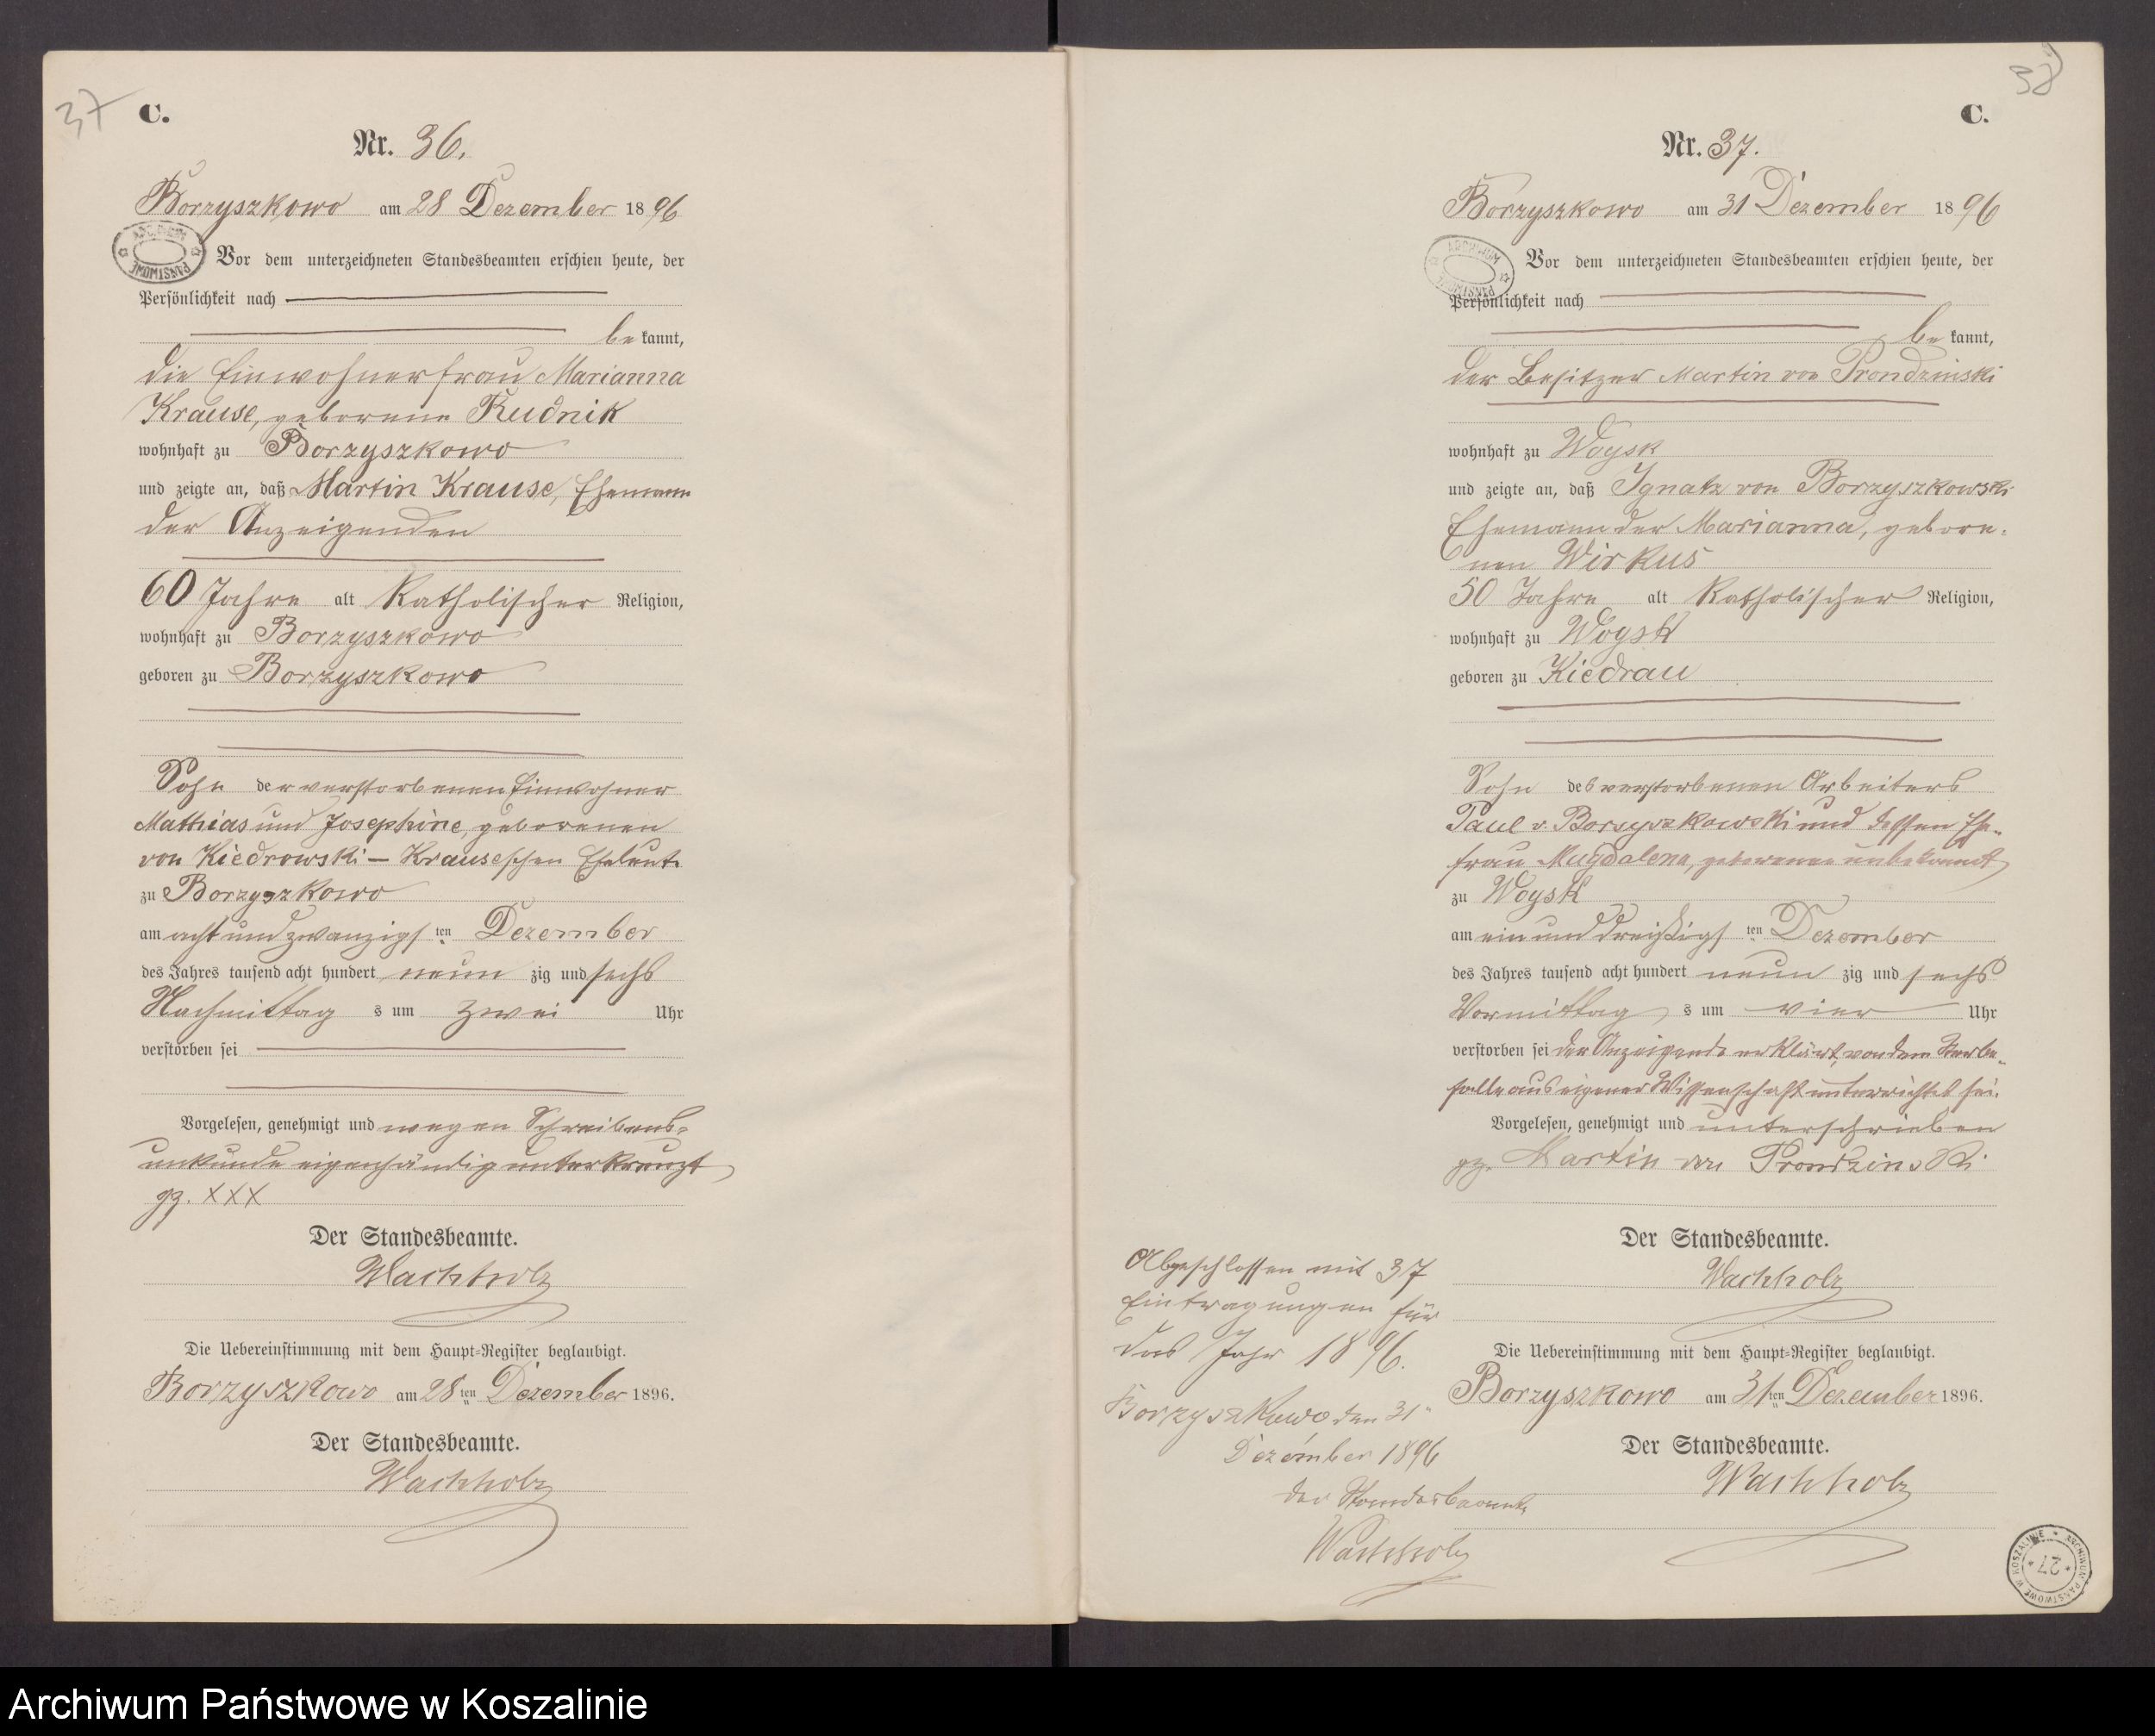 37
C.
Nr. 36.
Borzyszkowo am 28 Dezember 1896
ARCHIWUM PAŃSTWOWE
Vor dem unterzeichneten Standesbeamten erschien heute, der
Persönlichkeit nach
be kannt,
die Einwohnerfrau Marianna
Krause, geborene Rudnik
wohnhaft zu Borzyszkowo
und zeigte an, daß Martin Krause, Ehemann
der Anzeigenden
60 Jahre alt Katholischer Religion,
wohnhaft zu Borzyszkowo
geboren zu Borzyszkowo
Sohn der verstorbenen Einwohner
Mathias und Josephine, geborenen
von Kiedrowski – Krauseschen Eheleute
zu Borzyszkowo
am acht und zwanzigsten Dezember
des Jahres tausend acht hundert neun zig und sechs
Nachmittag s um zwei Uhr
verstorben sei
Vorgelesen, genehmigt und wegen Schreibens-
unkunde eigenhändig unterkreuzt
gz. XXX
Der Standesbeamte.
Wachholz
Die Uebereinstimmung mit dem Haupt-Register beglaubigt.
Borzyszkowo am 28ten Dezember 1896.
Der Standesbeamte.
Wachholz
38
C.
Nr. 37.
Borzyszkowo am 31 Dezember 1896
ARCHIWUM PAŃSTWOWE
Vor dem unterzeichneten Standesbeamten erschien heute, der
Persönlichkeit nach
be kannt,
der Besitzer Martin von Prondzinski
wohnhaft zu Woysk
und zeigte an, daß Ignatz von Borzyszkowski
Ehemann der Marianna, gebore-
nen Wirkus
50 Jahre alt Katholischer Religion,
wohnhaft zu Woysk
geboren zu Kiedrau
Sohn des verstorbenen Arbeiters
Paul v. Borzyszkowski und dessen Ehe-
frau Magdalena, geborenen unbekannt
zu Woysk
am ein und dreißigsten Dezember
des Jahres tausend acht hundert neun zig und sechs
Vormittag s um vier Uhr
verstorben sei der Anzeigende erklärt, von dem Sterbe-
falle aus eigener Wissenschaft unterrichtet sei.
Vorgelesen, genehmigt und unterschrieben
gz. Martin von Prondzinski
Der Standesbeamte.
Wachholz
Die Uebereinstimmung mit dem Haupt-Register beglaubigt.
Borzyszkowo am 31ten Dezember 1896.
Der Standesbeamte.
Wachholz
Abgeschlossen mit 37
Eintragungen für
das Jahr 1896.
Borzyszkowo, den 31ⁿ
Dezember 1896
Der Standesbeamte
Wachholz
ARCHIWUM PAŃSTWOWE W KOSZALINIE
* 27 *
Archiwum Państwowe w Koszalinie